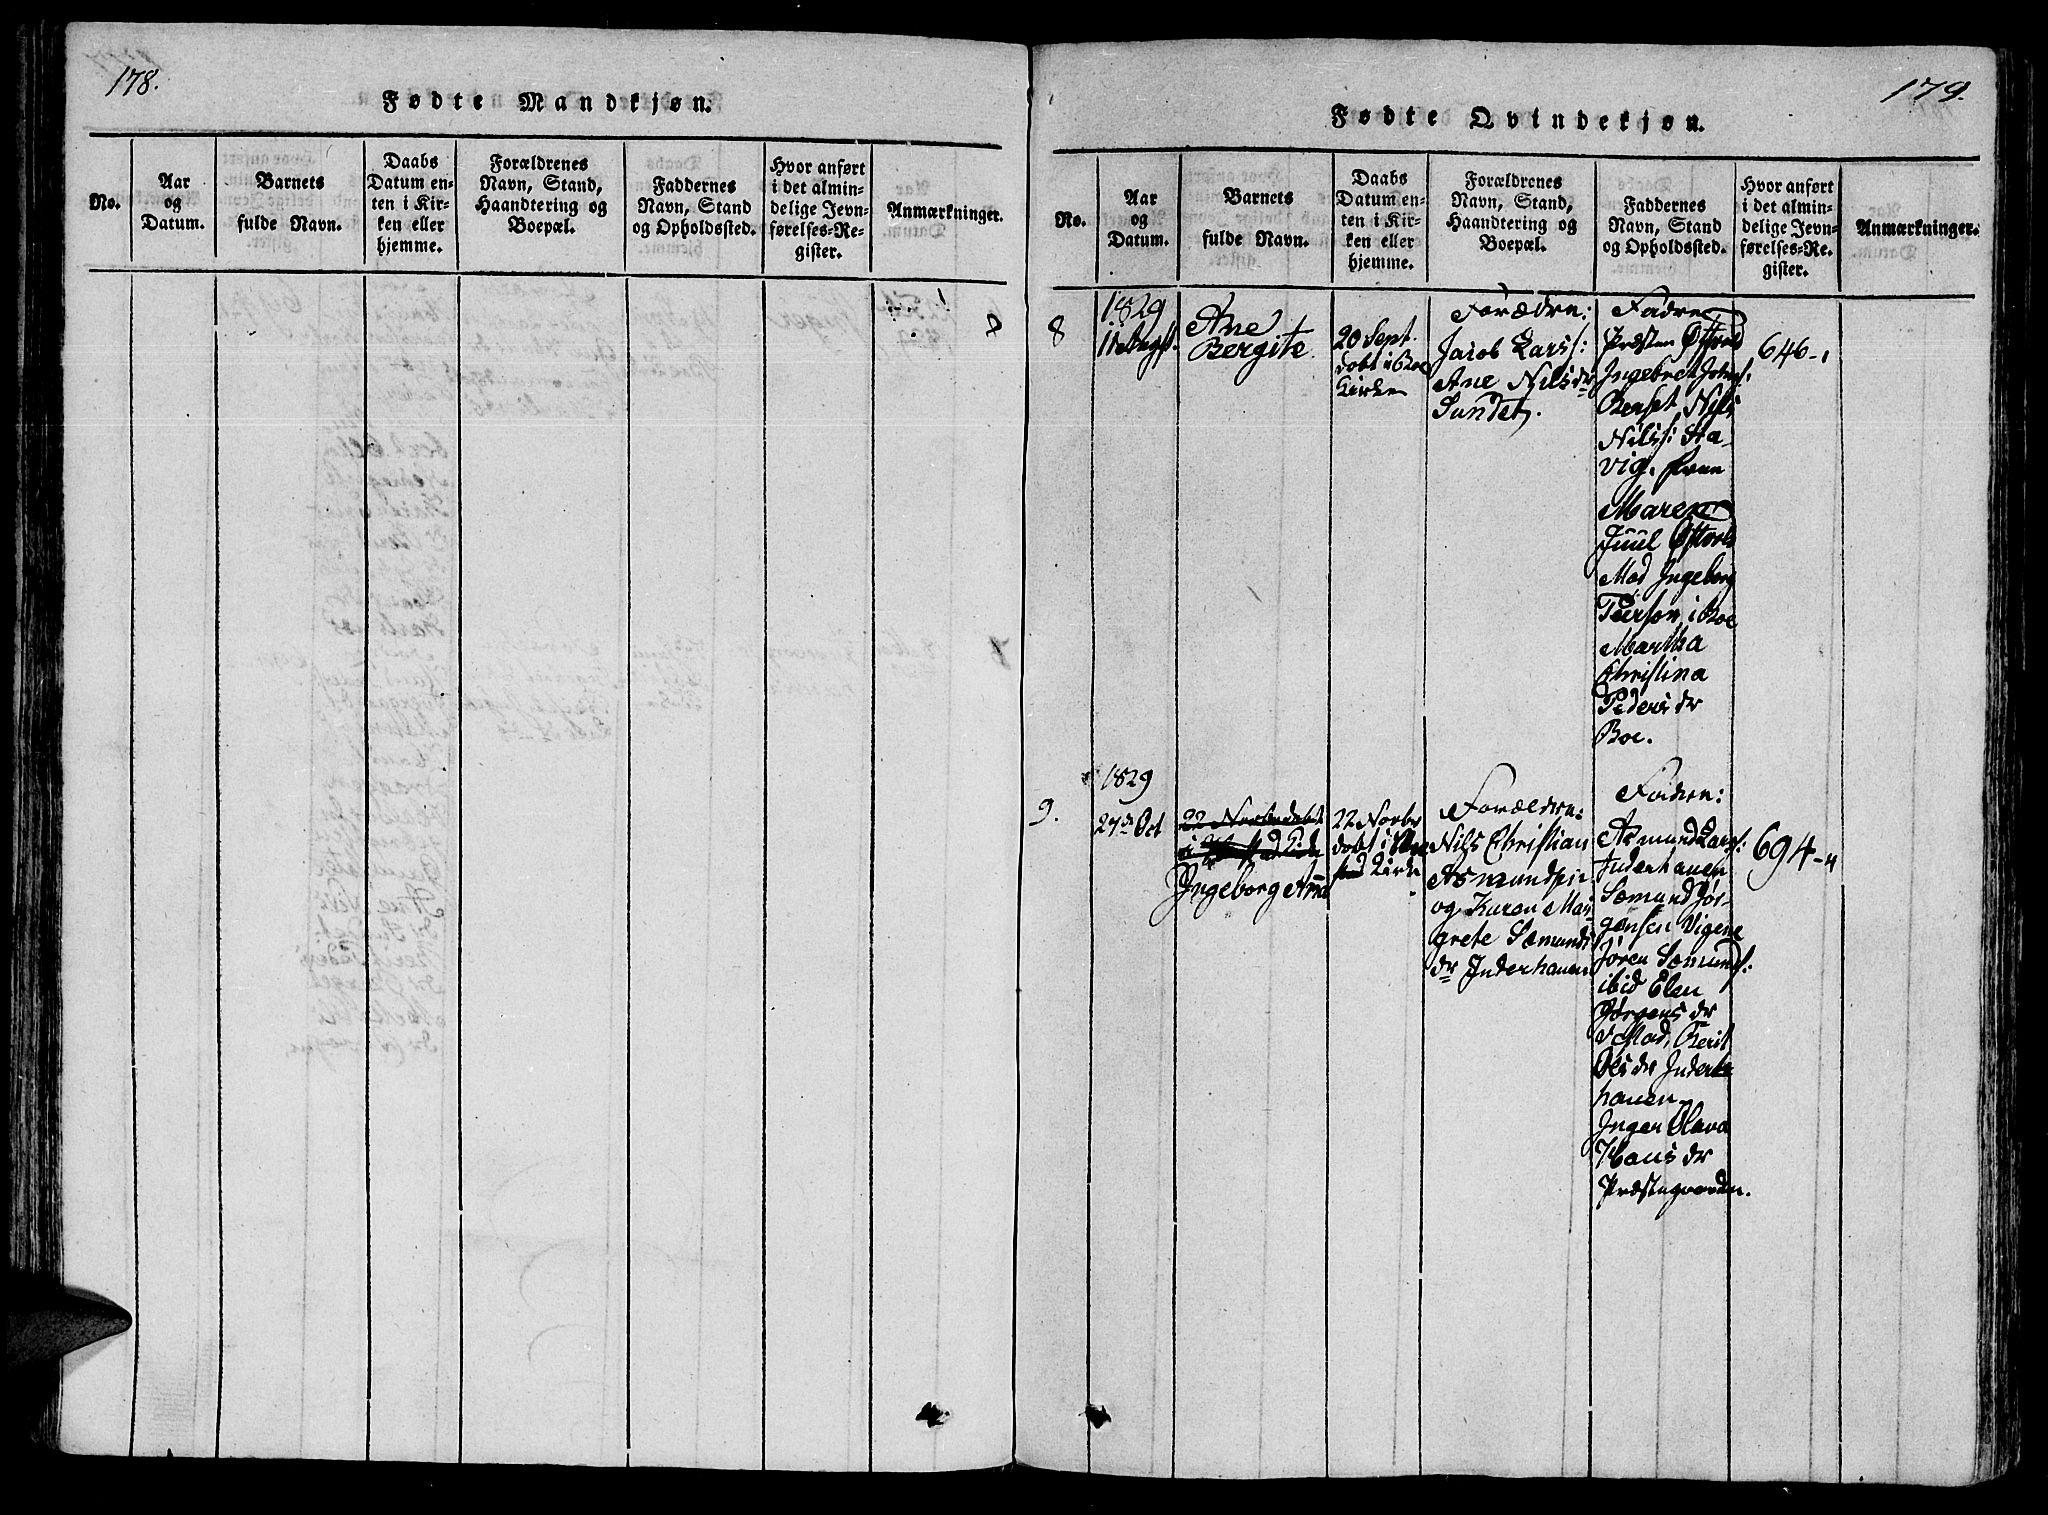 178.
Fødte Mandkjøn.
No.
Aar
og
Datum.
Barnets
fulde Navn.
Daabs
Datum en-
ten i Kir-
ken eller
hjemme.
Forældrenes
Navn, Stand,
Haandtering og
Boepæl.
Faddernes
Navn, Stand
og Opholdssted.
Hvor anført
i det almin-
delige Jevn-
førelses-Re-
gister.
Anmærkninger.
179.
Fødte Qvindekjøn.
No.
Aar
og
Datum.
Barnets
fulde Navn.
Daabs
Datum en-
ten i Kir-
ken eller
hjemme.
Forældrenes
Navn, Stand,
Haandtering og
Boepæl.
Faddernes
Navn, Stand
og Opholdssted.
Hvor anført
i det almin-
delige Jevn-
førelses-Re-
gister.
Anmærkninger.
8
8
1829
11 Augs.
Ane
Bergite
20 Sept.
døbt i Boe
Kirke
Forædre:
Jacob Larss:
Ane Nilsdr
Sundet.
Fadre
Præsten
Ingebret Johns:
Berset, Nils
Nilss: Sta-
vig. Frue
Maren
Juul
Mad Ingeborg
i Boe
Martha
Christina
Pedersdr
Boe.
646-1
9.
1829
27de Oct
22 Novbr døbt
Ingeborg Anna
22 Novbr
døbt i
Kirke
Forældre:
Nils Christian
Asmundsen
og Karen Mar-
grete Sæmunds
dr Inderhaven
Fadre:
Asmund Lars:
Inderhaven
Sæmund Jør-
gensen Vigene
Jøren Sæmunds:
ibid Elen
Jørgensdr
Berit
Olsdr Inder-
haven
Inger Olava
Hansdr
Præstegaarden.
694-4